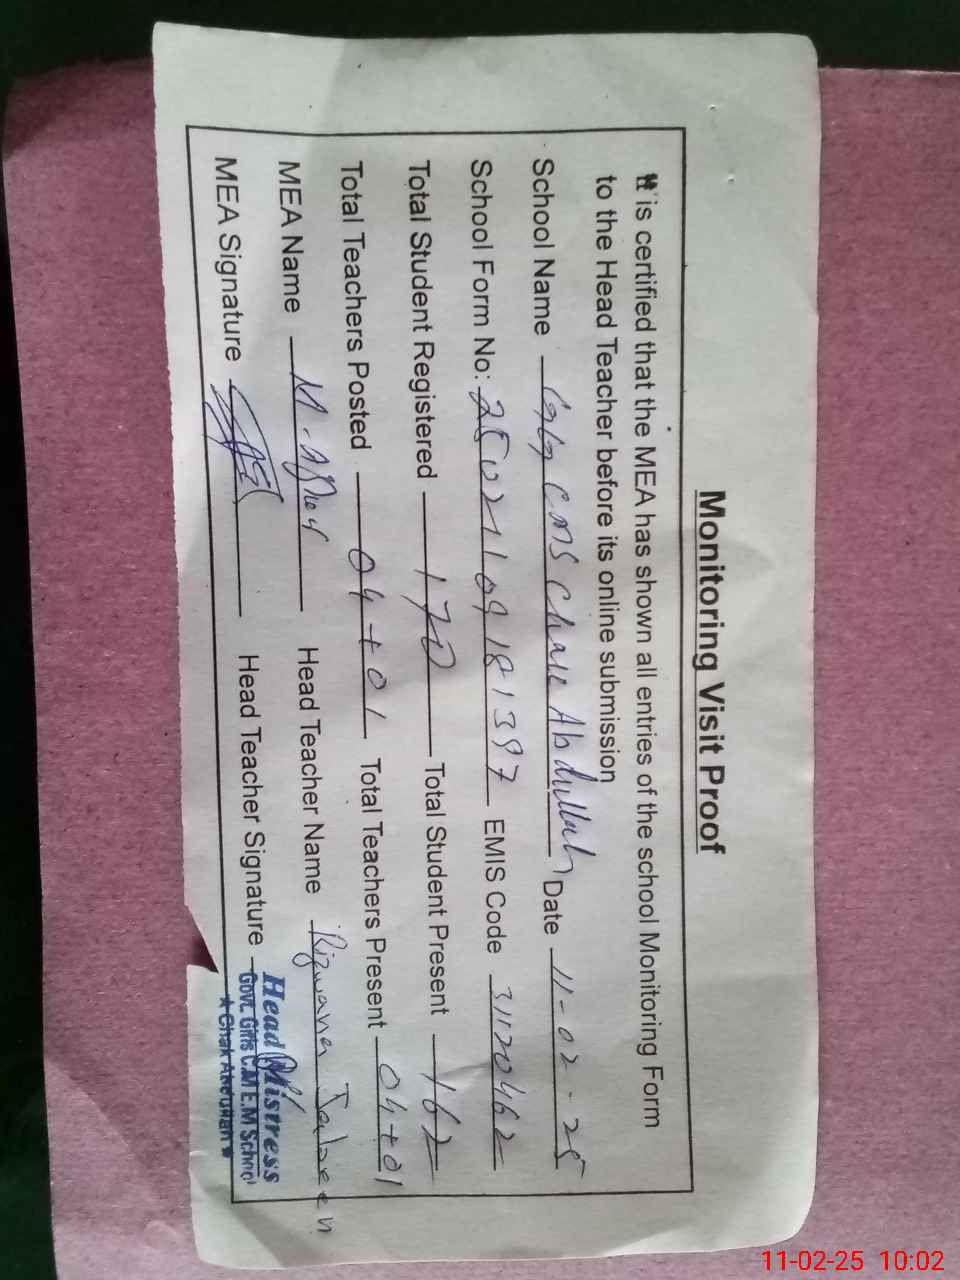 Monitoring Visit Proof
It is certified that the MEA has shown all entries of the school Monitoring Form
to the Head Teacher before its online submission
School Name CMS Chak Abdullah Date 11-02-25
School Form No: 25021109181397 EMIS Code 31120462
Total Student Registered 172 Total Student Present 162
Total Teachers Posted 04+01 Total Teachers Present 04+01
MEA Name M. Head Teacher Name Rizwana
MEA Signature Head Teacher Signature
Head Mistress
Govt. Girls C.M E.M School
★ Chak Abdullah ★
11-02-25 10:02